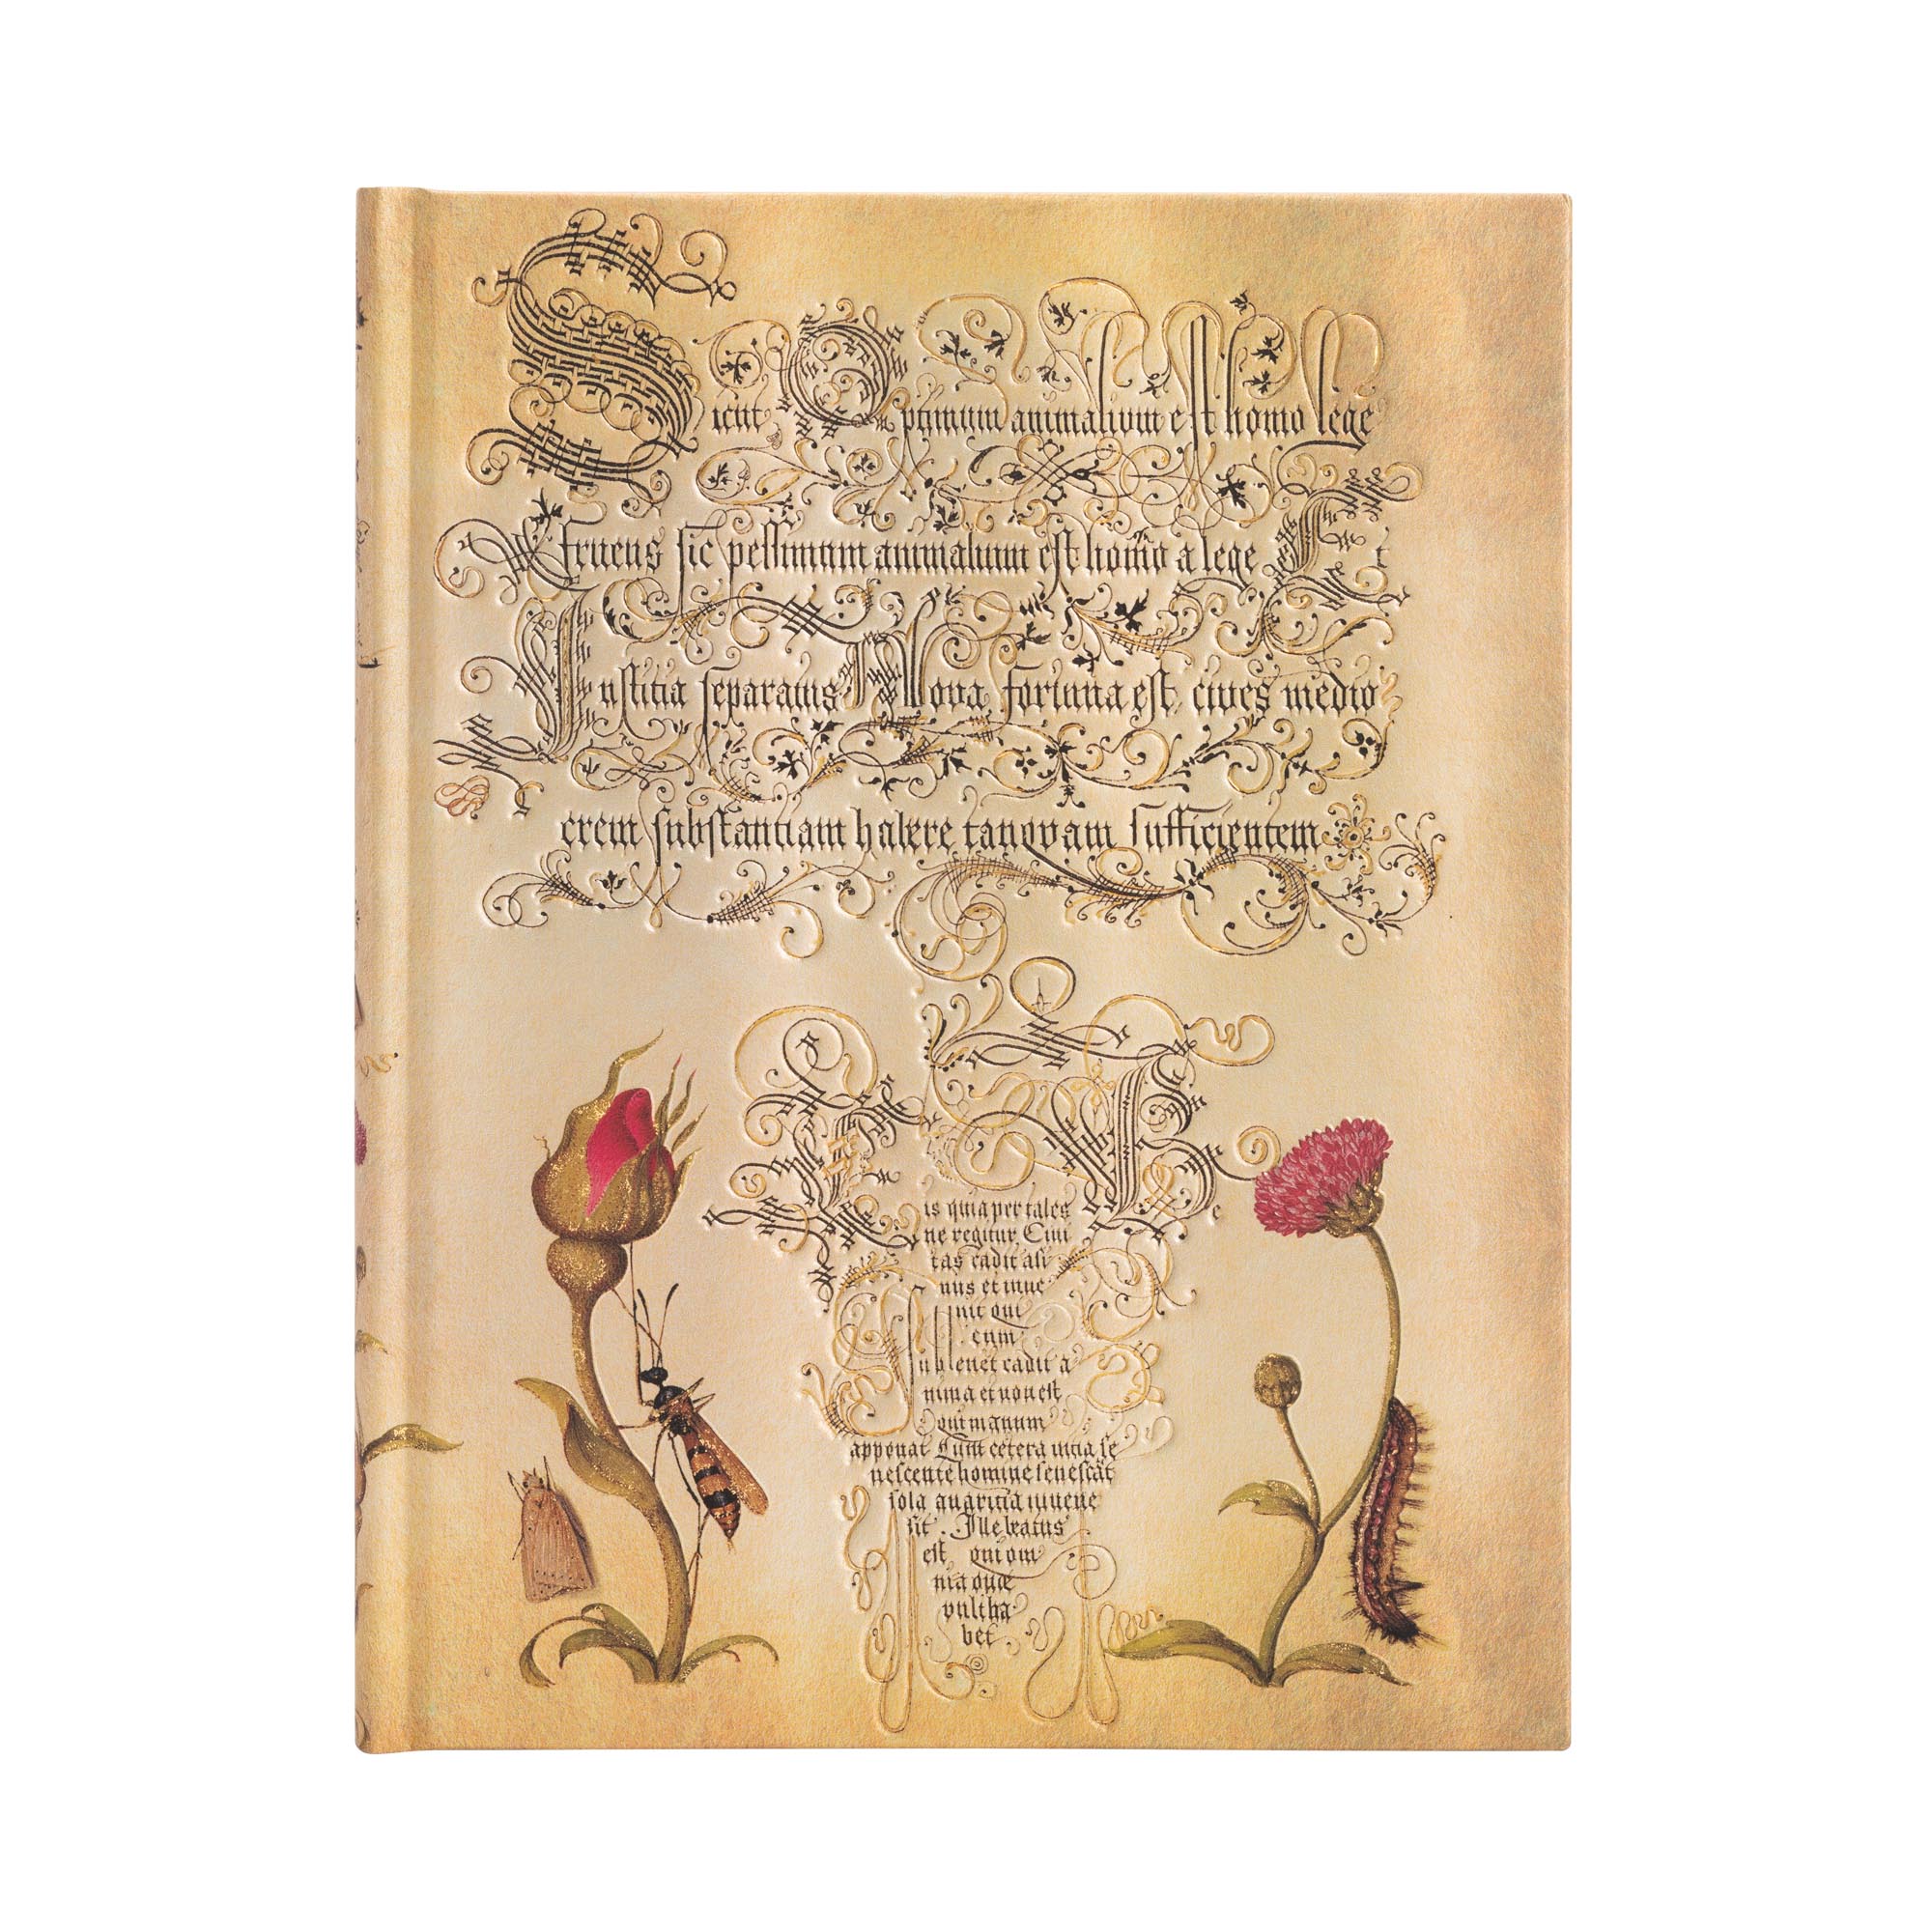 Sicut Optimum animalium est homo lege
fruens sic pessimum animalium est homo a lege Et
Iustitia separatus Nova fortuna est cives medio
crem substantiam habere tanquam sufficientem
is quia per tales
ne regitur Civi
tas cadit asi
nus et inve
nit qui
eum
sublevet cadit a
nima et non est
qui manum
apponat Cum cetera vitia se
nescente homine senescāt
sola avaritia iuvene
sit . Ille beatus
est qui om
nia quæ
vult ha
bet